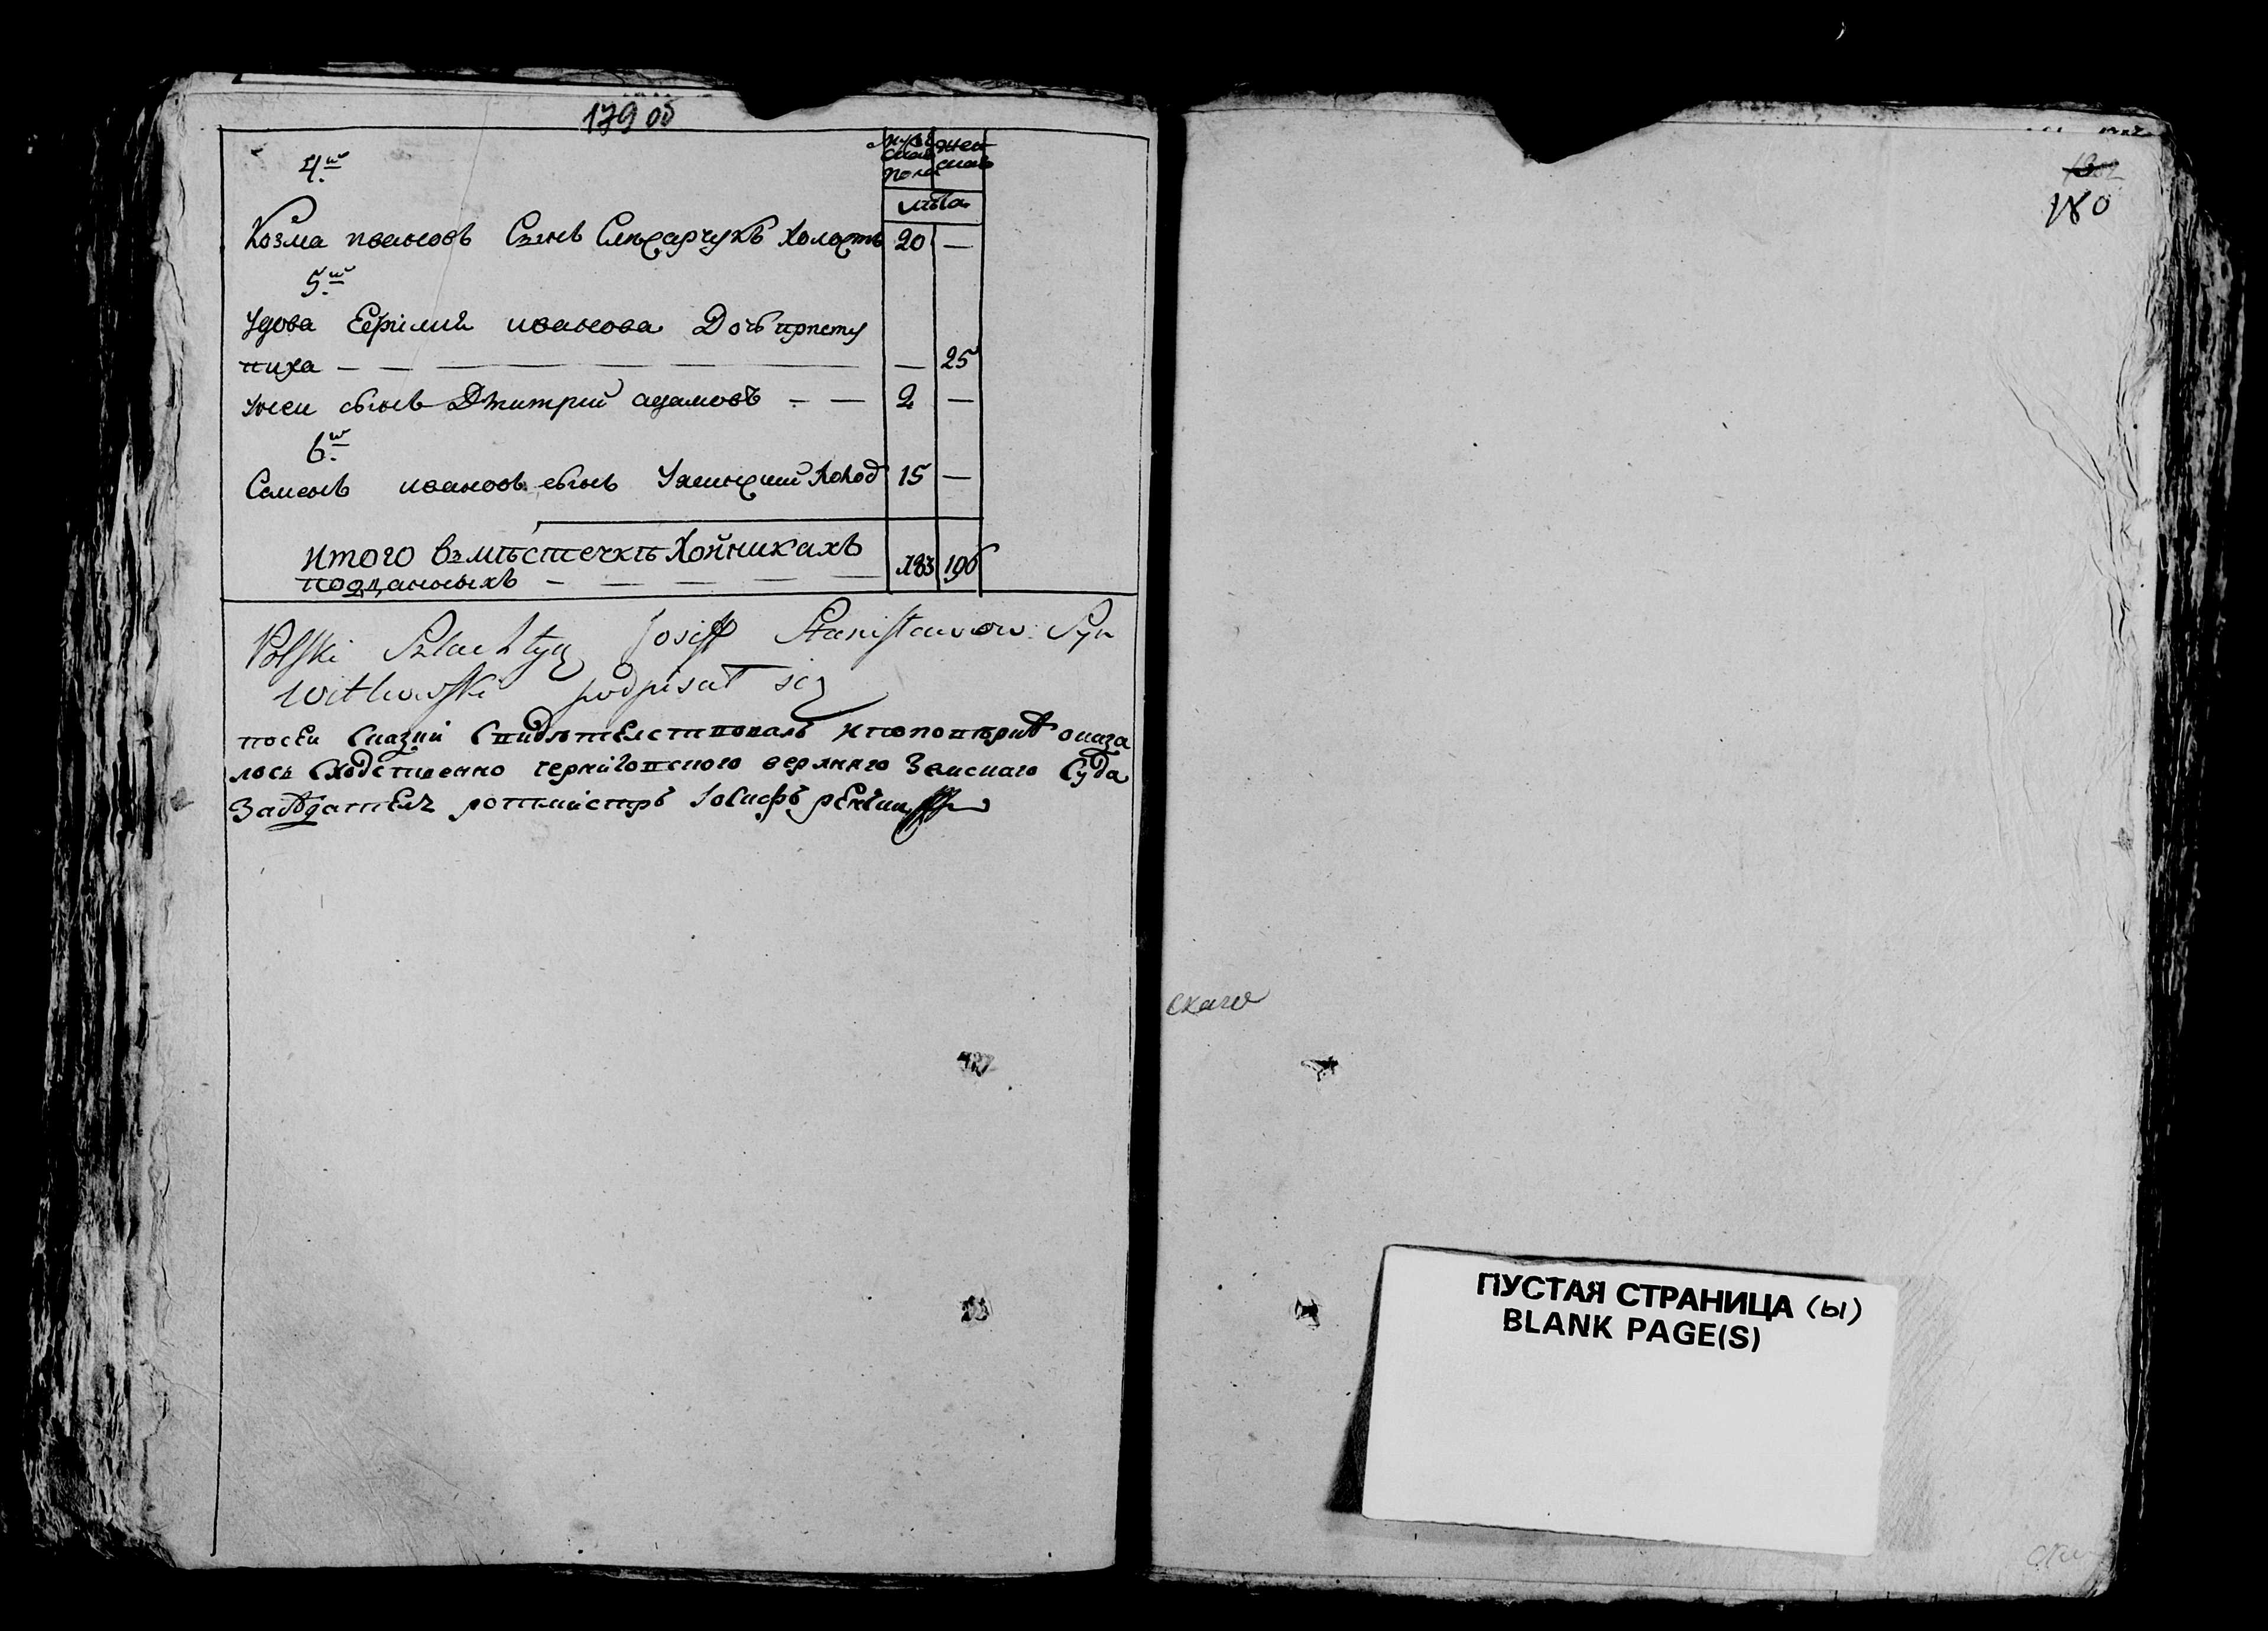 179 об
мужеска женска
пола
лѣта
4й
Козма ивановъ Сынъ Слѣсарчукъ Холостъ 20 —
5й
Удова Ефимия иванова Дочь присту
пиха — 25
Унеи сынъ Дмитрий адамовъ — — 2 —
6й
Семенъ ивановъ сынъ 15 —
Итого въ мѣстечкѣ Хойникахъ
подданныхъ — — — — — 183 196
Polski Szlachtyc Josiff Stanisławow Syn
Witkowski podpisał się
посеи Сказки Свидѣтелствовалъ Итоповѣрке оказа
лось Сходственно черниговского верхняго Земскаго Суда
Заседатель ротмистръ Іосифъ
180
скаго
ПУСТАЯ СТРАНИЦА (Ы)
BLANK PAGE(S)